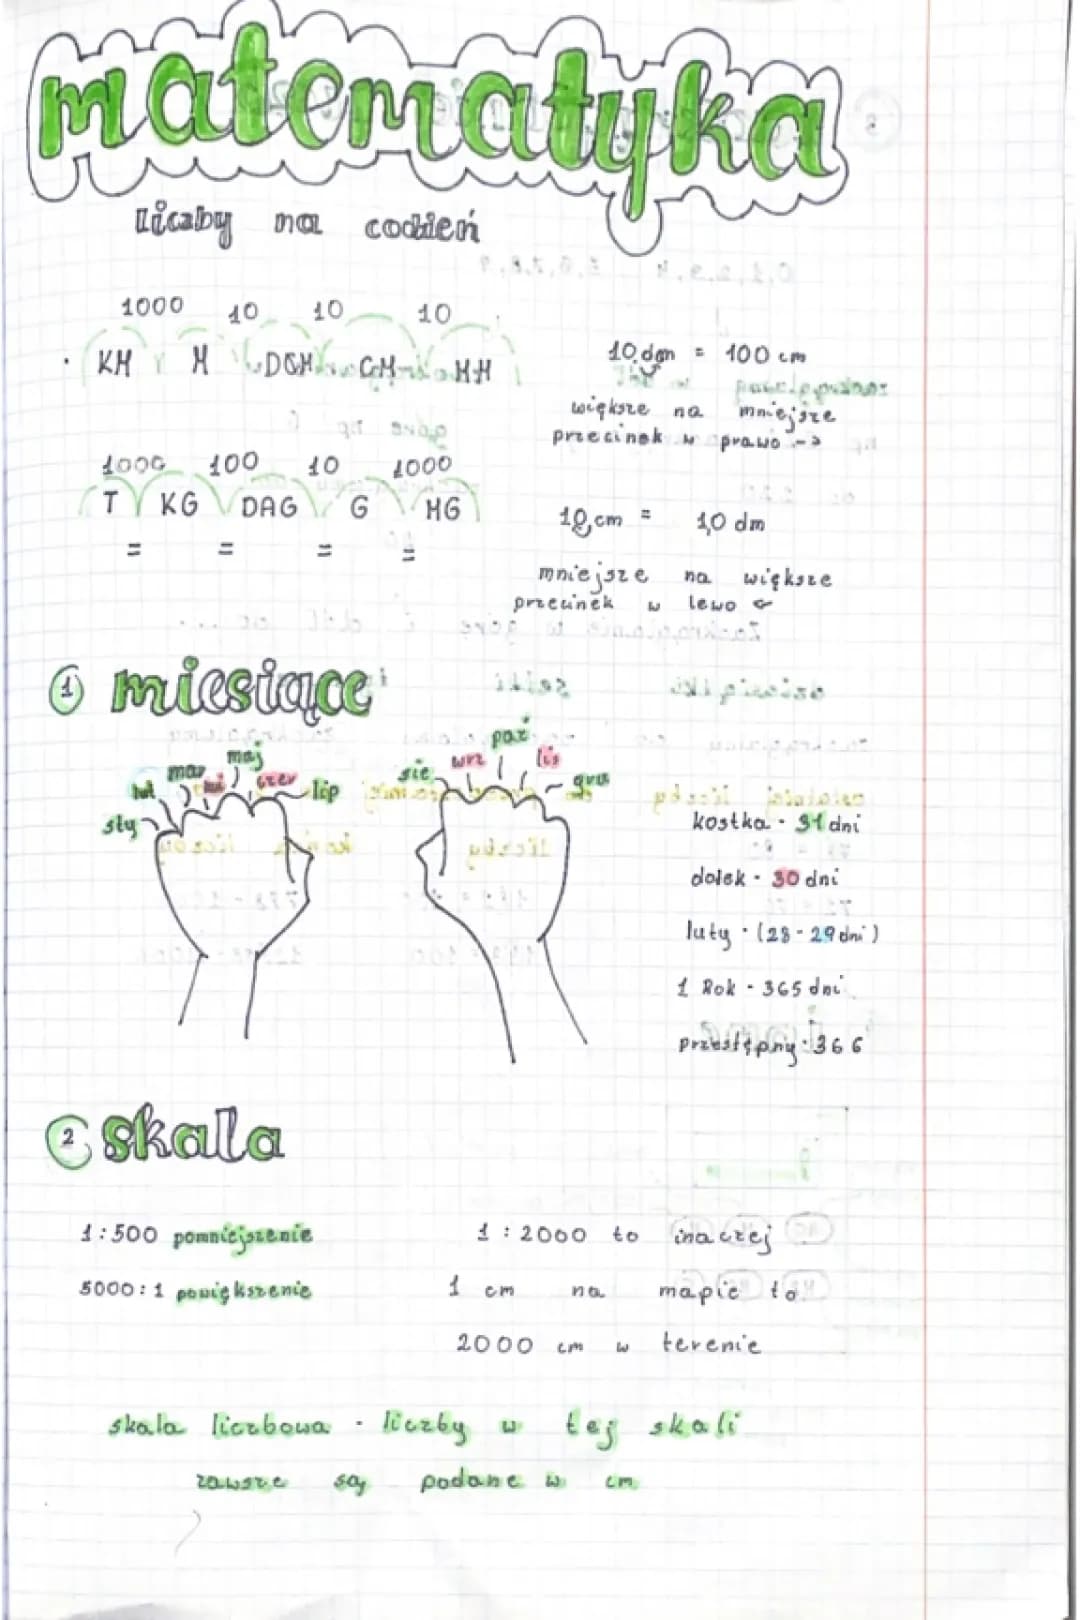 matematyka
liczby na codzień
1000 10 10 10
KM M DCM CM MM
10 dcm = 100 cm
większe na mniejsze
przecinek w prawo ->
1000 100 10 1000
T KG DAG G MG
= = = =
10, cm = 1,0 dm
mniejsze na większe
przecinek w lewo <-
1 miesiące
sty lut mar kwi maj czer lip
sie wrz paź lis gru
kostka - 31 dni
dołek - 30 dni
luty - (28-29 dni)
1 Rok - 365 dni
przestępny - 366
2 skala
1:500 pomniejszenie
5000:1 powiększenie
1 : 2000 to inaczej
1 cm na mapie to
2000 cm w terenie
skala liczbowa - liczby w tej skali
zawsze są podane w cm